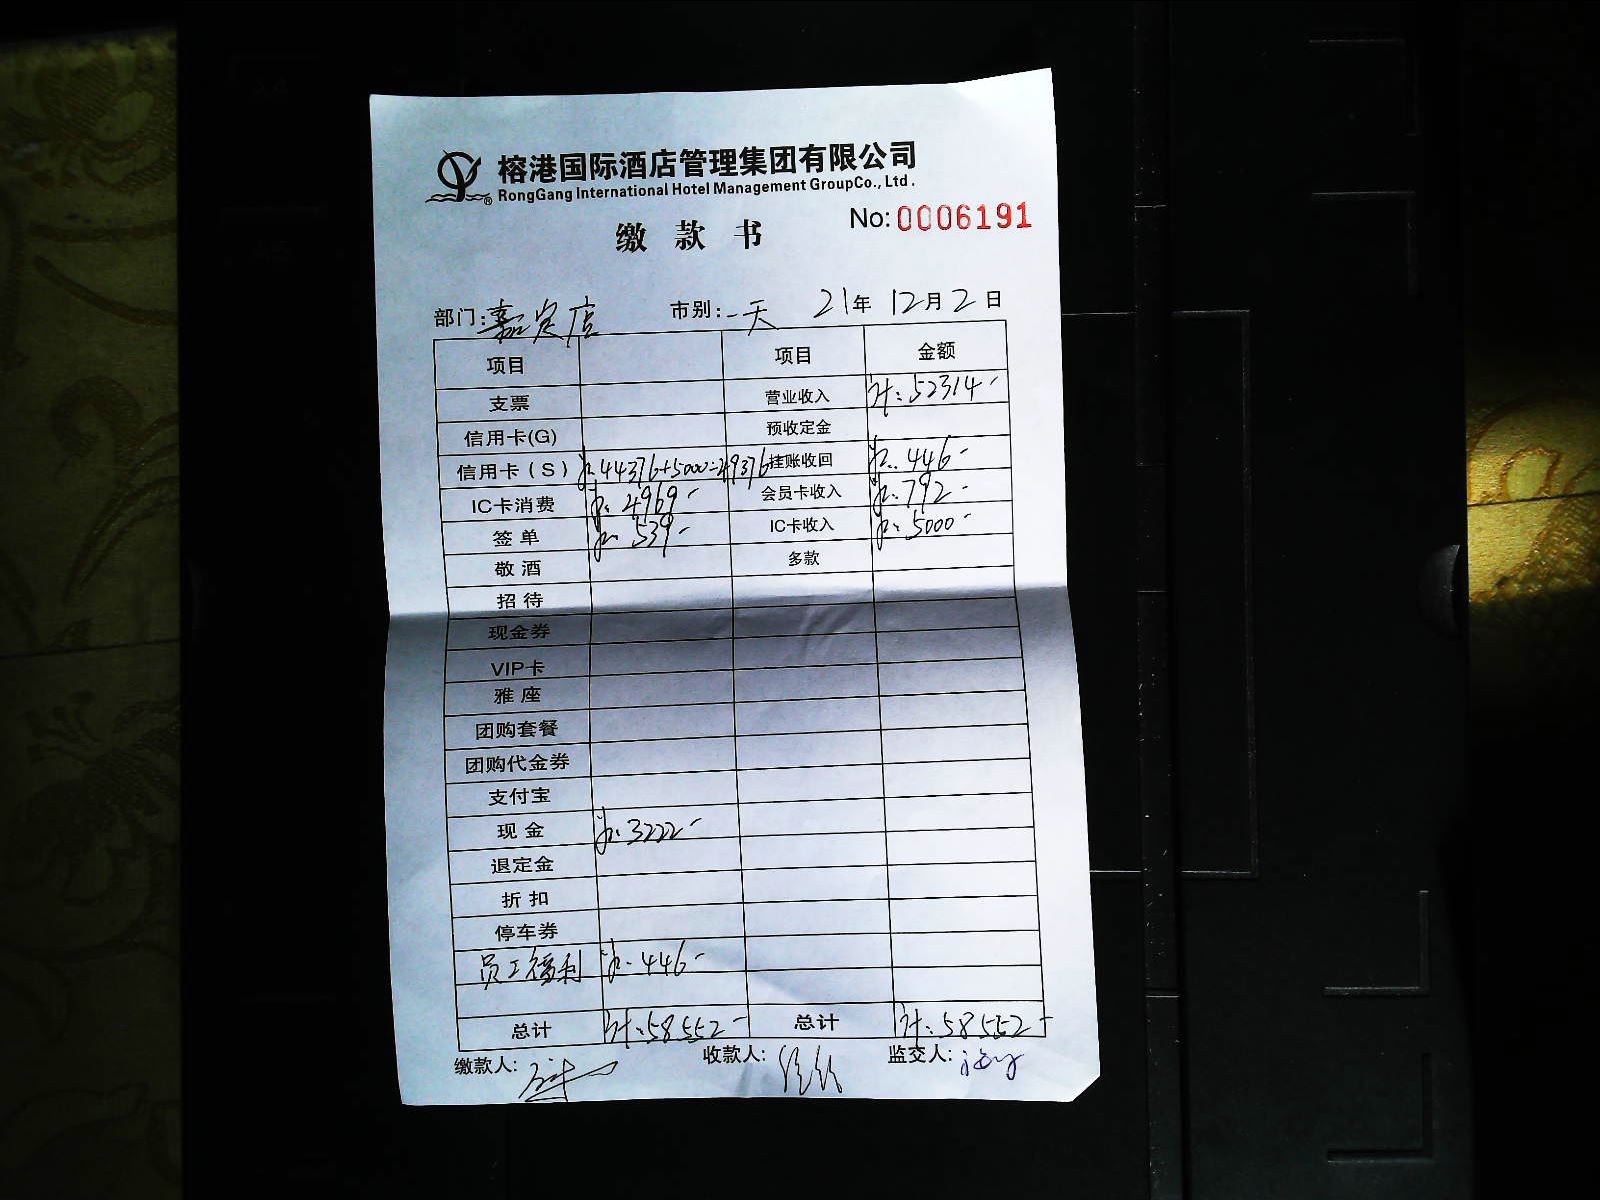 榕港国际酒店管理集团有限公司
RongGang International Hotel Management GroupCo., Ltd.
®
No: 0006191
缴 款 书
部门: 嘉定店 市别: 一天 21年 12月 2日
项目 项目 金额
支票 营业收入 计: 52314-
信用卡(G) 预收定金
信用卡(S) 计: 44376+5000=49376 挂账收回 计: 446-
IC卡消费 计: 4969- 会员卡收入 计: 792-
签 单 计: 539- IC卡收入 计: 5000-
敬 酒 多款
招 待
现金券
VIP卡
雅 座
团购套餐
团购代金券
支付宝
现 金 计: 3222-
退定金
折 扣
停车券
员工福利 计: 446-
总计 计: 58552- 总计 计: 58552-
缴款人: 收款人: 监交人: